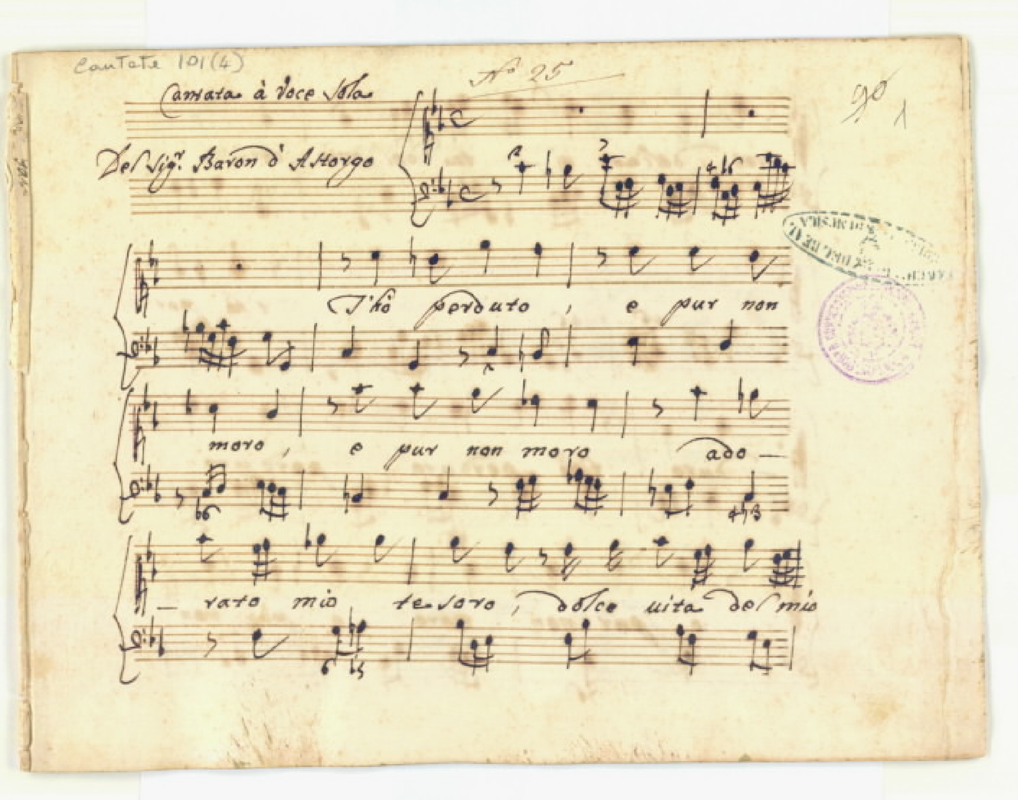 Cantate 101(4)
No 25
Cantata à Voce Sola
90
1
Del Sigr. Baron d'Astorgo
T'hò perduto, e pur non
moro, e pur non moro ado-
-rato mio tesoro, dolce uita del mio